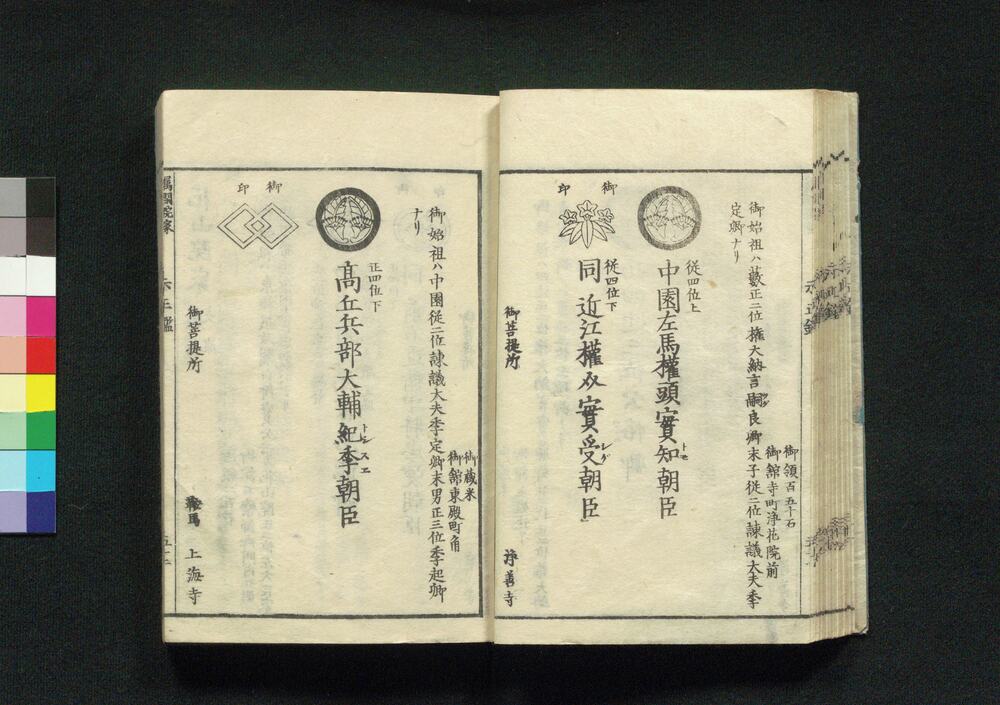 御領百五十石
御舘寺町浄花院前
御始祖ハ藪正二位権大納言嗣良卿末子従二位諫議大夫季
定卿ナリ
従四位上
中園左馬權頭實知朝臣
トモ
御印
従四位下
同近江權介實受朝臣
御菩提所
浄善寺
御蔵米
御舘東殿町角
御始祖ハ中園従二位諫議大夫季定卿末男正三位季起卿
ナリ
正四位下
髙丘兵部大輔紀季朝臣
トシスエ
御印
御菩提所
鞍馬
上海寺